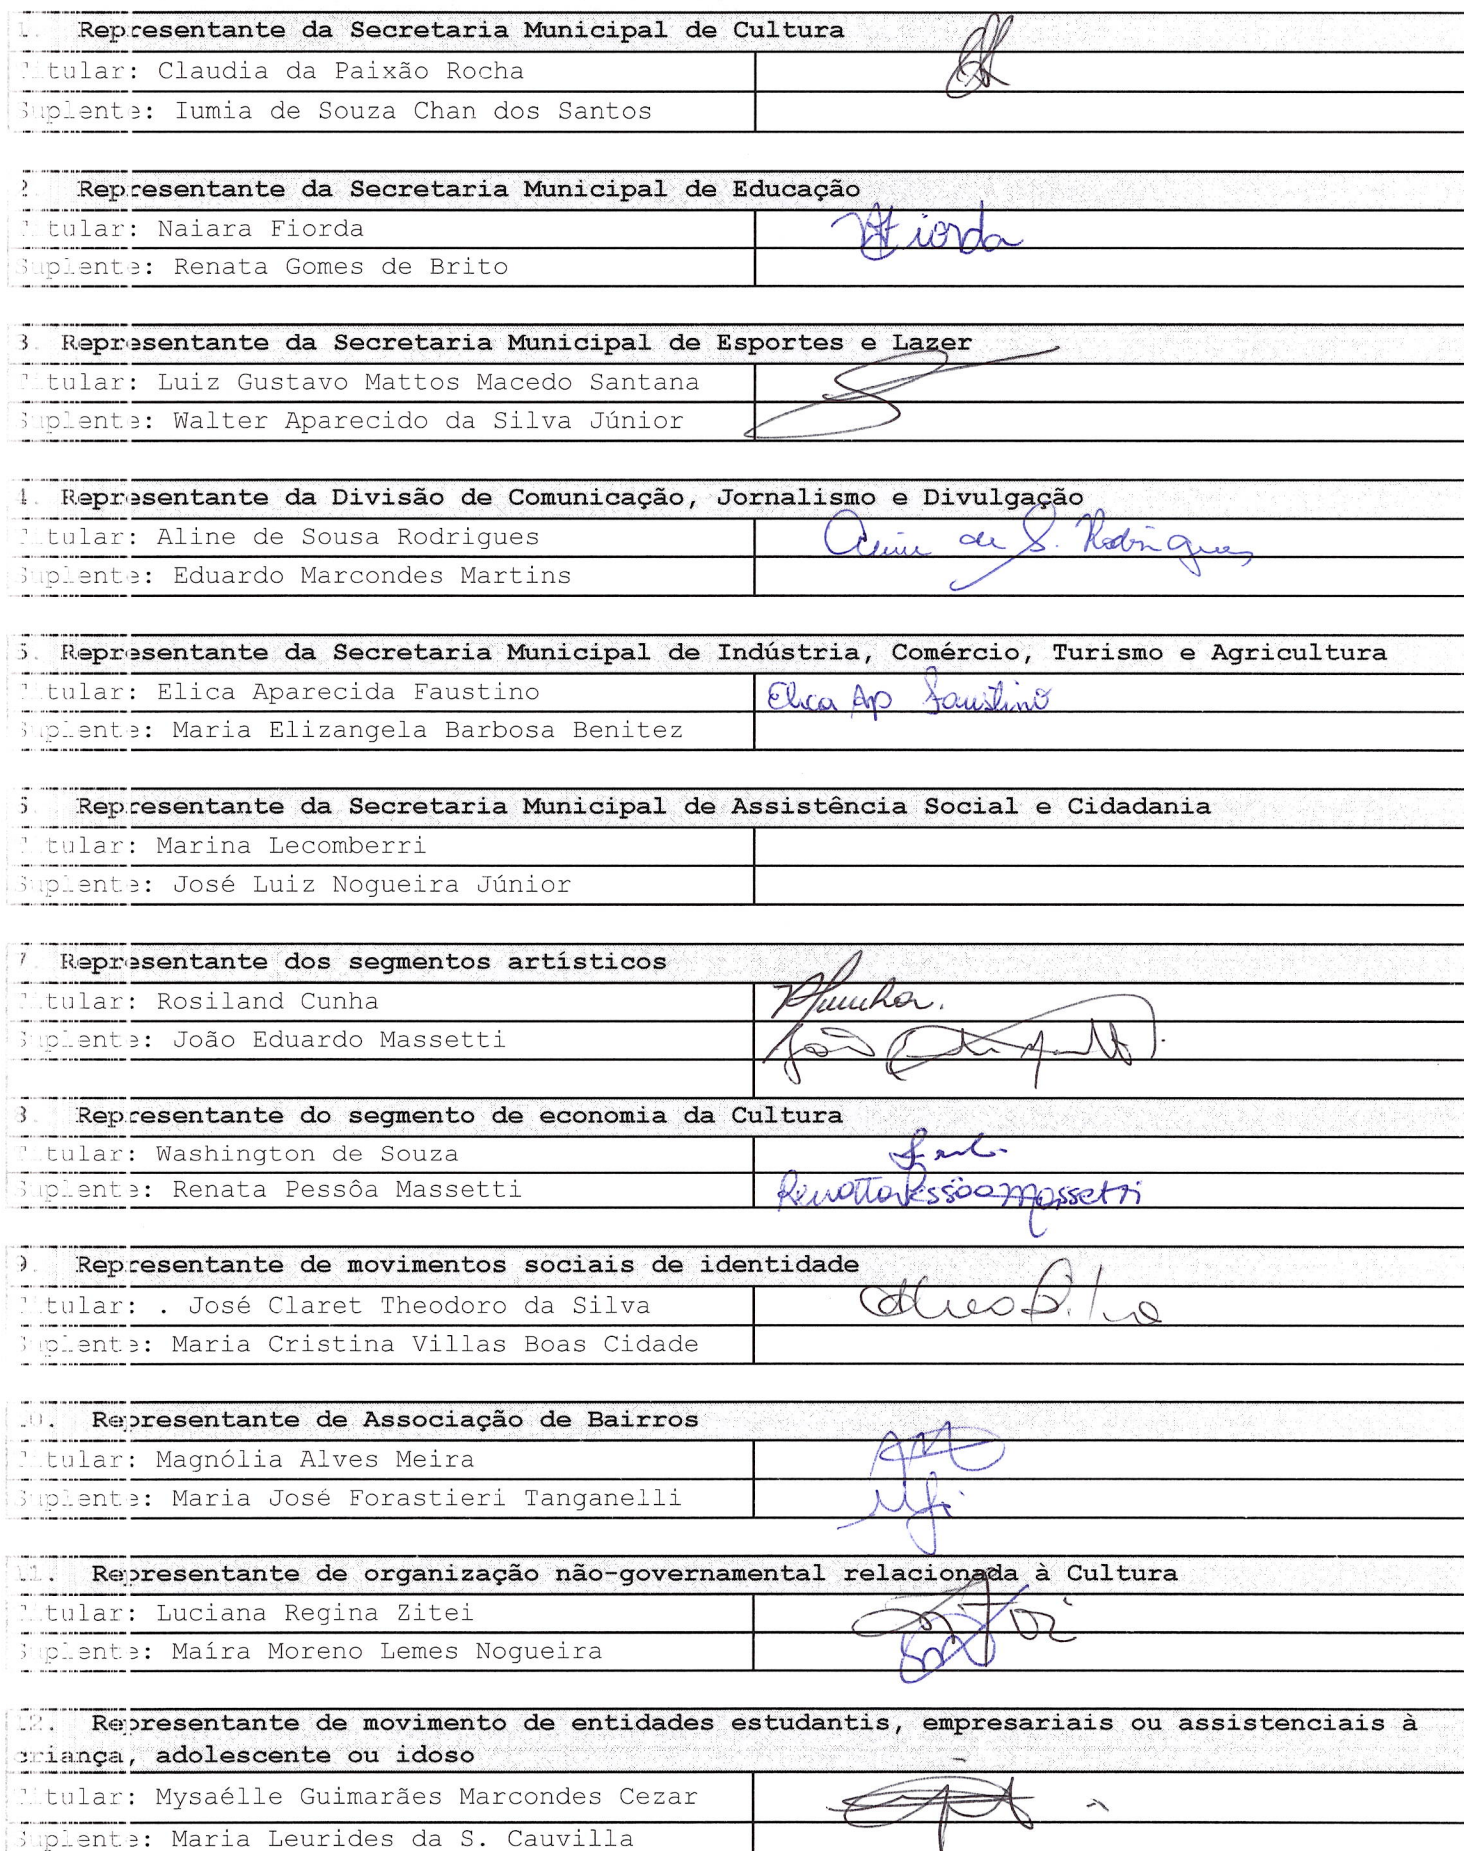 1. Representante da Secretaria Municipal de Cultura
Titular: Claudia da Paixão Rocha
Suplente: Iumia de Souza Chan dos Santos
2. Representante da Secretaria Municipal de Educação
Titular: Naiara Fiorda
NFiorda
Suplente: Renata Gomes de Brito
3. Representante da Secretaria Municipal de Esportes e Lazer
Titular: Luiz Gustavo Mattos Macedo Santana
Suplente: Walter Aparecido da Silva Júnior
4. Representante da Divisão de Comunicação, Jornalismo e Divulgação
Titular: Aline de Sousa Rodrigues
Aline de S. Rodrigues
Suplente: Eduardo Marcondes Martins
5. Representante da Secretaria Municipal de Indústria, Comércio, Turismo e Agricultura
Titular: Elica Aparecida Faustino
Elica Ap Faustino
Suplente: Maria Elizangela Barbosa Benitez
6. Representante da Secretaria Municipal de Assistência Social e Cidadania
Titular: Marina Lecomberri
Suplente: José Luiz Nogueira Júnior
7. Representante dos segmentos artísticos
Titular: Rosiland Cunha
RCunha.
Suplente: João Eduardo Massetti
João
8. Representante do segmento de economia da Cultura
Titular: Washington de Souza
Suplente: Renata Pessôa Massetti
Renatta Pessôa Massetti
9. Representante de movimentos sociais de identidade
Titular: . José Claret Theodoro da Silva
Suplente: Maria Cristina Villas Boas Cidade
10. Representante de Associação de Bairros
Titular: Magnólia Alves Meira
Suplente: Maria José Forastieri Tanganelli
11. Representante de organização não-governamental relacionada à Cultura
Titular: Luciana Regina Zitei
Suplente: Maíra Moreno Lemes Nogueira
12. Representante de movimento de entidades estudantis, empresariais ou assistenciais à
criança, adolescente ou idoso
Titular: Mysaélle Guimarães Marcondes Cezar
Suplente: Maria Leurides da S. Cauvilla